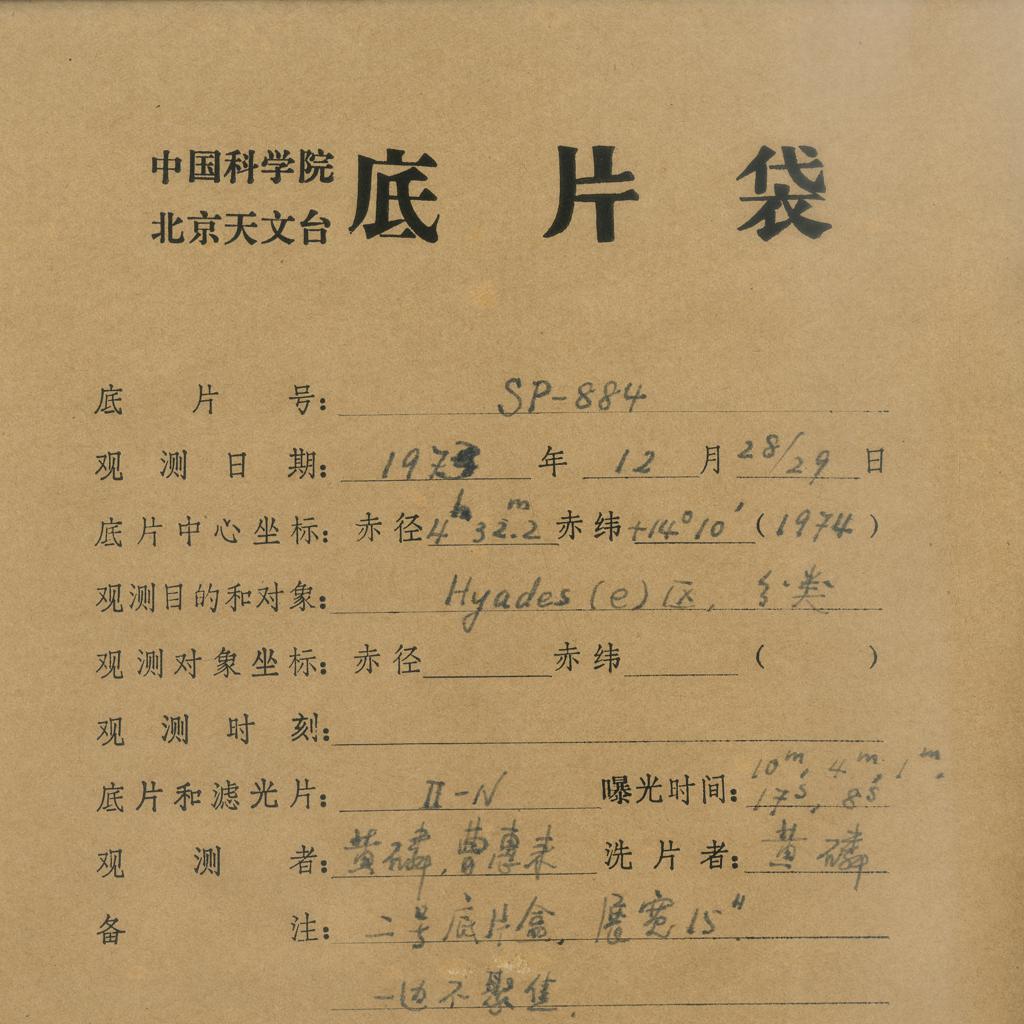 中国科学院
北京天文台
底片袋
底片号: SP-884
观测日期: 1973年 12月 28/29日
底片中心坐标: 赤径 4h 32m.2 赤纬 +14°10′ (1974)
观测目的和对象: Hyades (e) 区, 分类
观测对象坐标: 赤径 赤纬 ( )
观测时刻:
底片和滤光片: II-N 曝光时间: 10m, 4m, 1m,
17s, 8s
观测者: 黄磷, 曹惠来 洗片者: 黄磷
备注: 二号底片盒, 展宽15″
一边不聚焦.